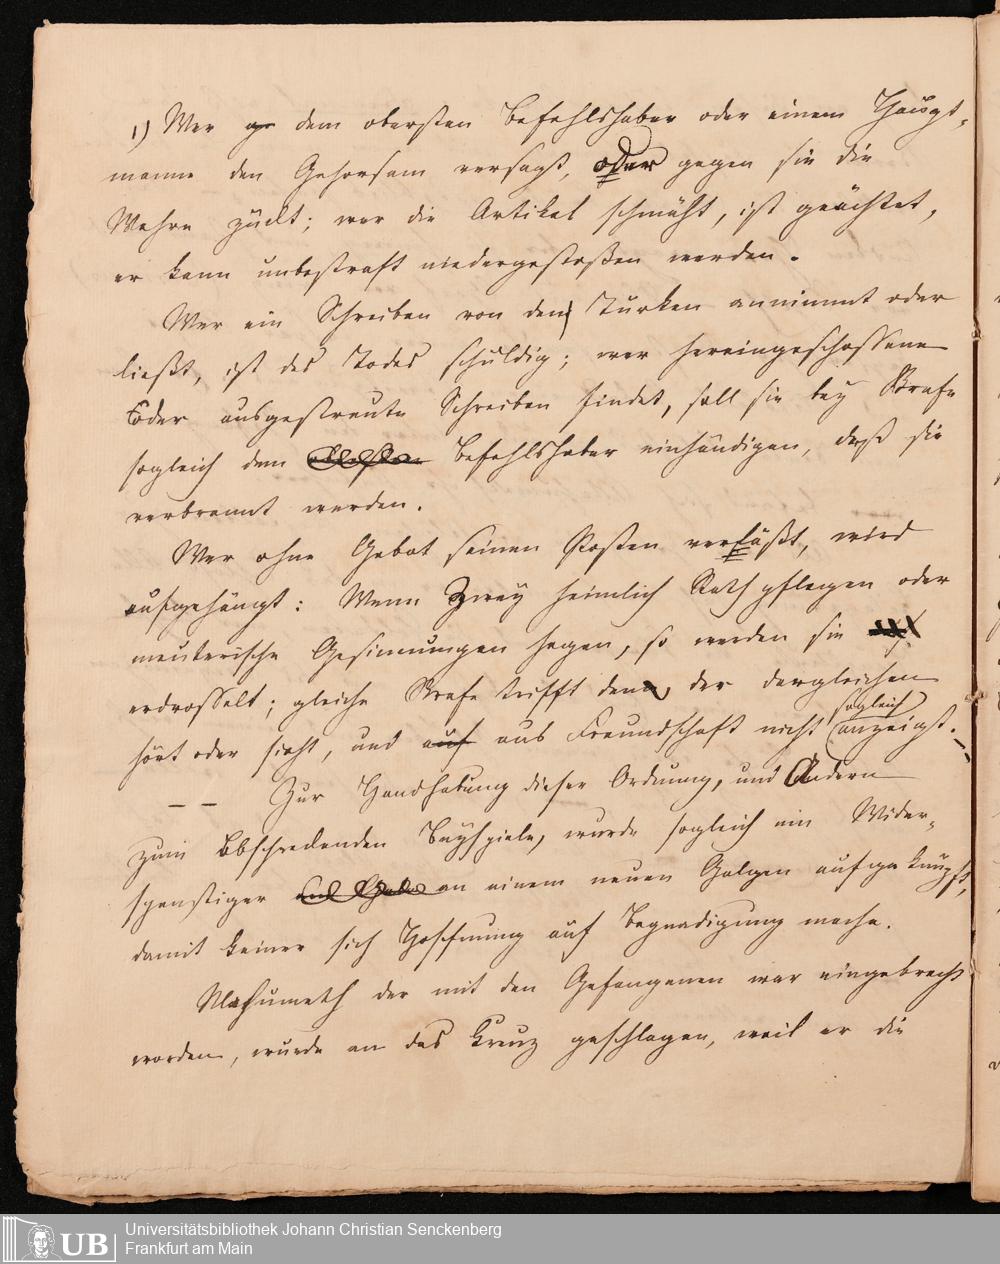 1) Wer ge dem obersten Befehlshaber oder einem Haupt-
manne den Gehorsam versagt, oder gegen sie die
Wehre zückt; wer die Artikel schmäht, ist geächtet,
er kann unbestraft niedergestoßen werden.
Wer ein Schreiben von den Türken annimmt oder
ließt, ist des Todes schuldig; wer hereingeschossene
oder ausgestreute Schreiben findet, soll sie bey Strafe
sogleich dem Befehlshaber einhändigen, daß sie
verbrannt werden.
Wer ohne Gebot seinen Posten verläßt, wird
aufgehängt: Wenn Zwey heimlich Rath pflegen oder
meuterische Gesinnungen hegen, so werden sie
erdrosselt; gleiche Strafe trifft den, der dergleichen
hört oder sieht, und auf aus Freundschaft nicht sogleich anzeigt. –
– – Zur Handhabung dieser Ordnung, und Andern
zum abschreckenden Beyspiele, wurde sogleich ein Wider-
spenstiger an einem neuen Galgen aufgeknüpft,
damit keiner sich Hoffnung auf Begnadigung mache.
Mahumeth der mit den Gefangenen war eingebracht
worden, wurde an das Kreuz geschlagen, weil er die
UB
Universitätsbibliothek Johann Christian Senckenberg
Frankfurt am Main